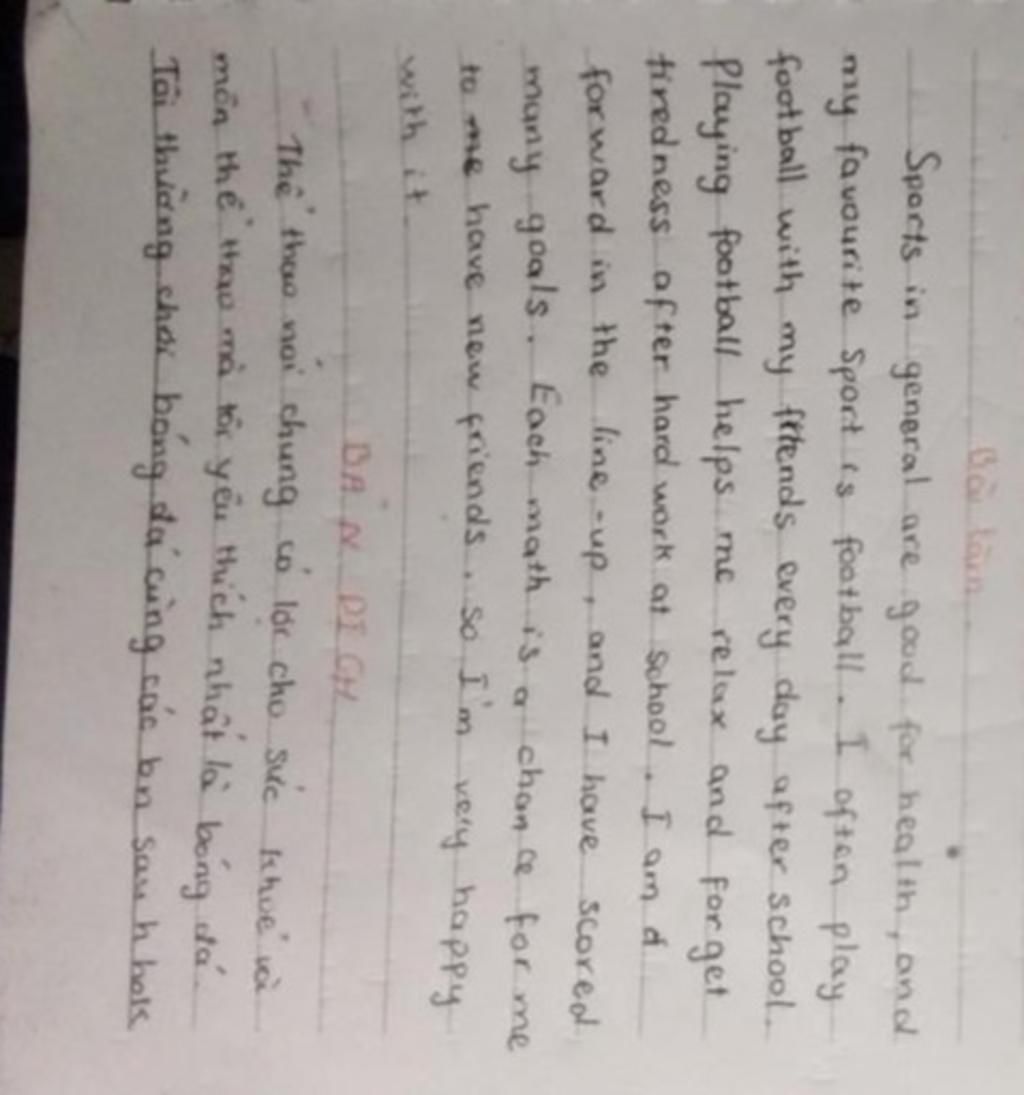 Bài làm.
Sports in general are good for health, and
my favourite sport is football. I often play
football with my friends every day after school.
Playing football helps me relax and forget
tiredness after hard work at school. I am a
forward in the line-up, and I have scored
many goals. Each math is a chance for me
to me have new friends. so I'm very happy
with it
BẢN DỊCH
Thể thao nói chung có lợi cho sức khoẻ và
môn thể thao mà tôi yêu thích nhất là bóng đá.
Tôi thường chơi bóng đá cùng các bn sau h